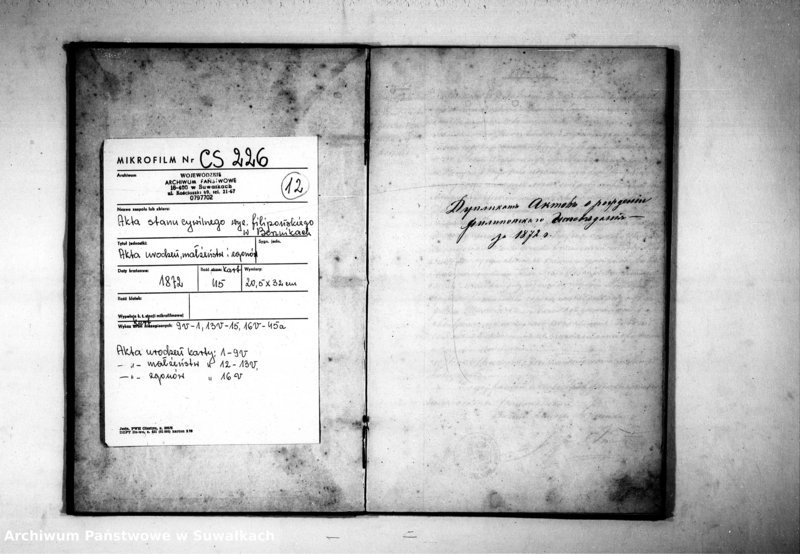 MIKROFILM Nr CS 226
Archiwum
WOJEWÓDZKIE
ARCHIWUM PAŃSTWOWE
16-400 w Suwałkach
ul. Kościuszki 69, tel. 21-67
0797702
12
Nazwa zespołu lub zbioru:
Akta stanu cywilnego wyz. filipońskiego
w Bornikach
Tytuł jednostki:
Sygn. jedn.
Akta urodzeń, małżeństw i zgonów
Daty krańcowe:
1872
Ilość kart
45
Wymiary:
20,5 x 32 cm
Ilość klatek:
Wypełnia k. t. stacji mikrofilmowej
Wykaz kart niezapisanych: 9v-1, 13v-15, 16v-45a
Akta urodzeń karty: 1-9v
- „- małżeństw „ 12-13v,
-„- zgonów „ 16v
Дупликатъ Актовъ о рожденіи
филипонскаго Исповѣданія —
за 1872 г.
Archiwum Państwowe w Suwałkach